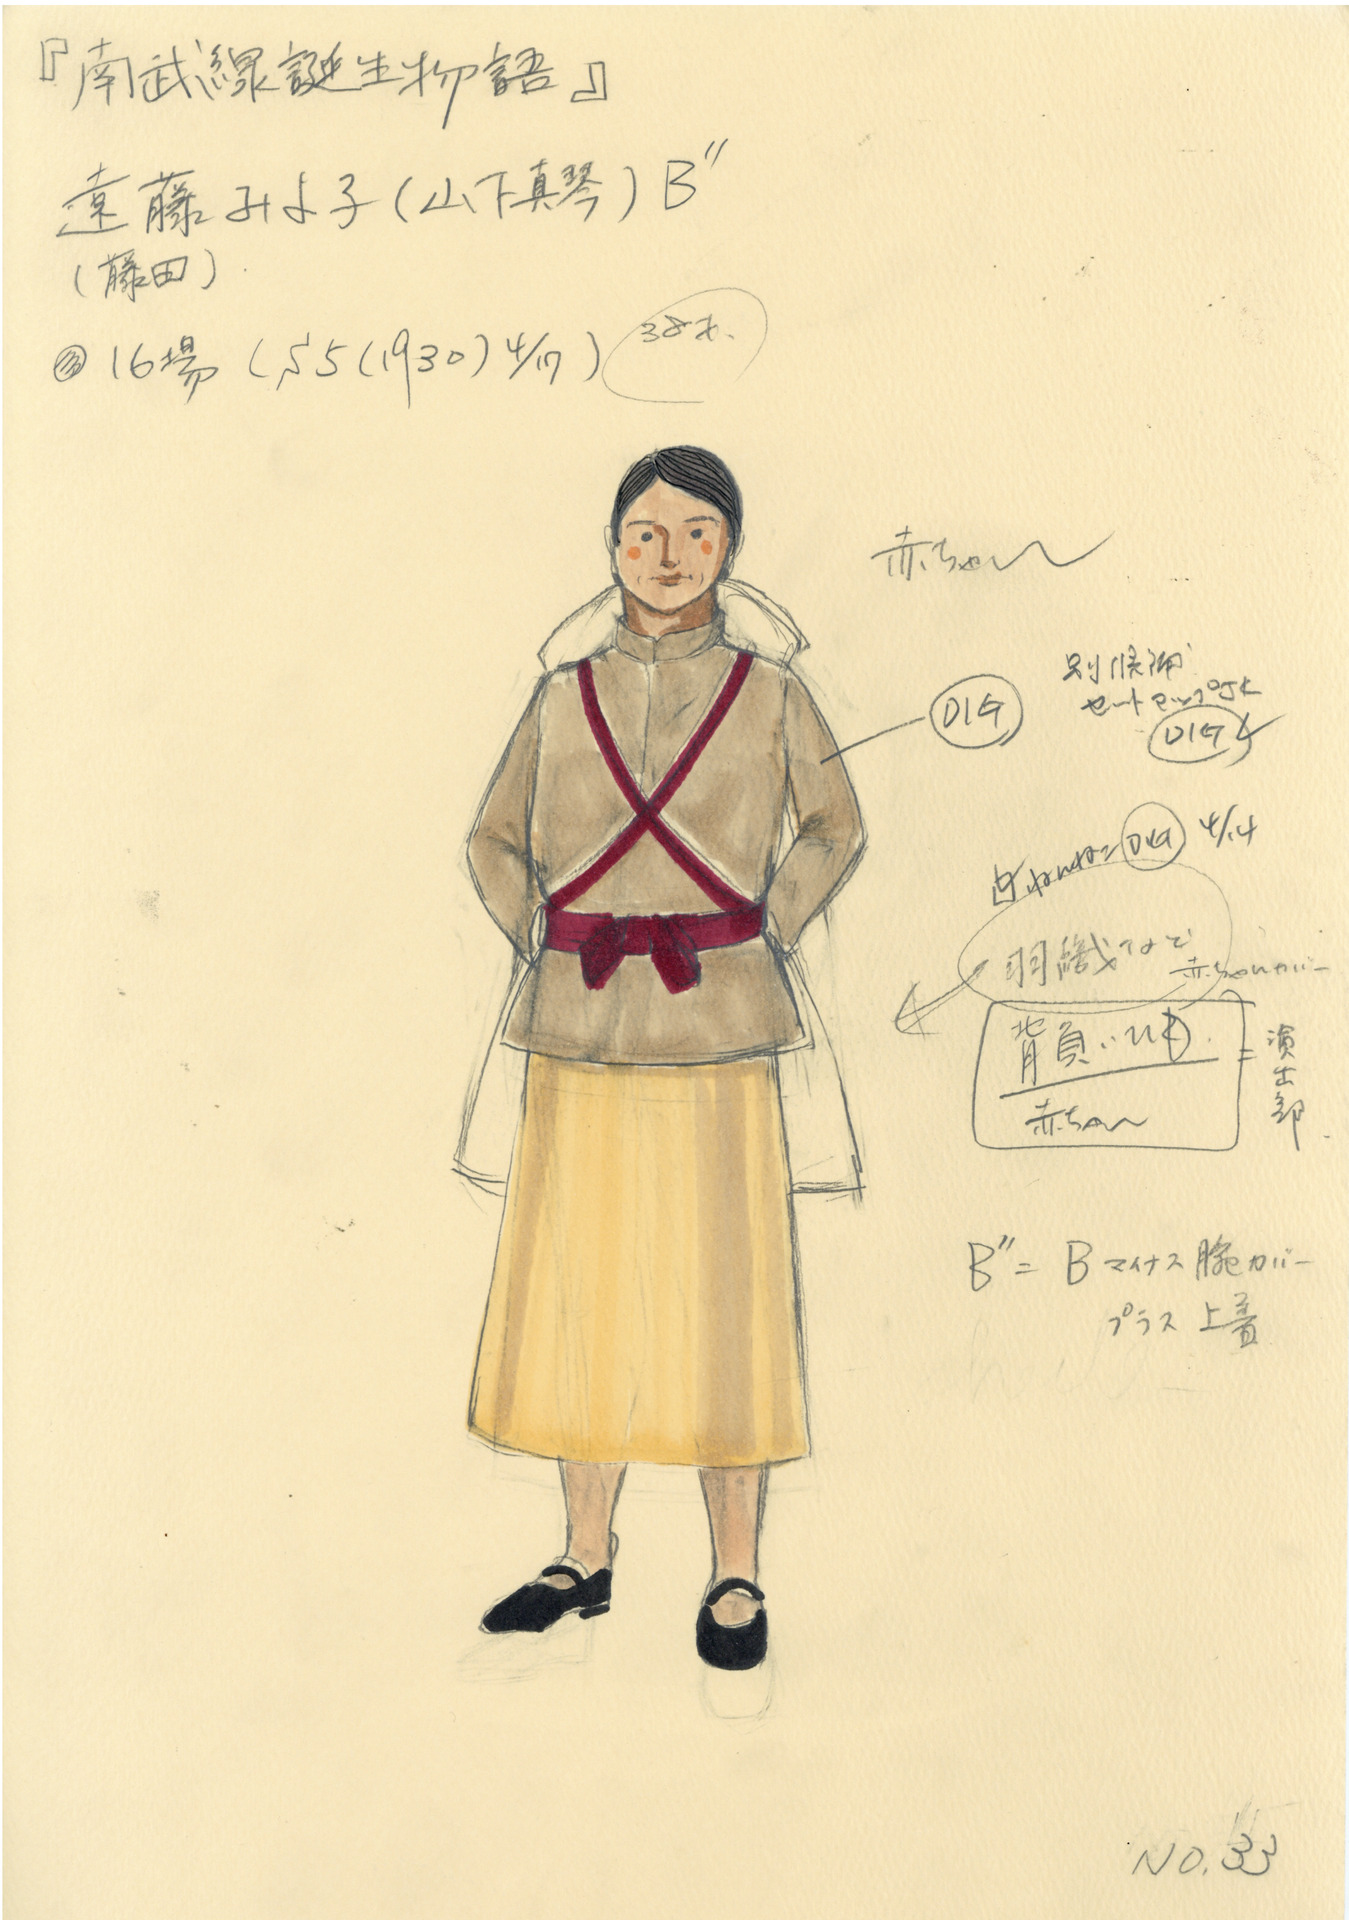 『南武線誕生物語』
遠藤みよ子(山下真琴)B″
(藤田)
16場(S5(1930)4/17)
38才
赤ちゃん
DIG
別候補
セットアップJK
DIG
DIG 4/14
羽織などで
赤ちゃんカバー
背負いひも
赤ちゃん
=演出部
B″=Bマイナス腕カバー
プラス上着
NO.33